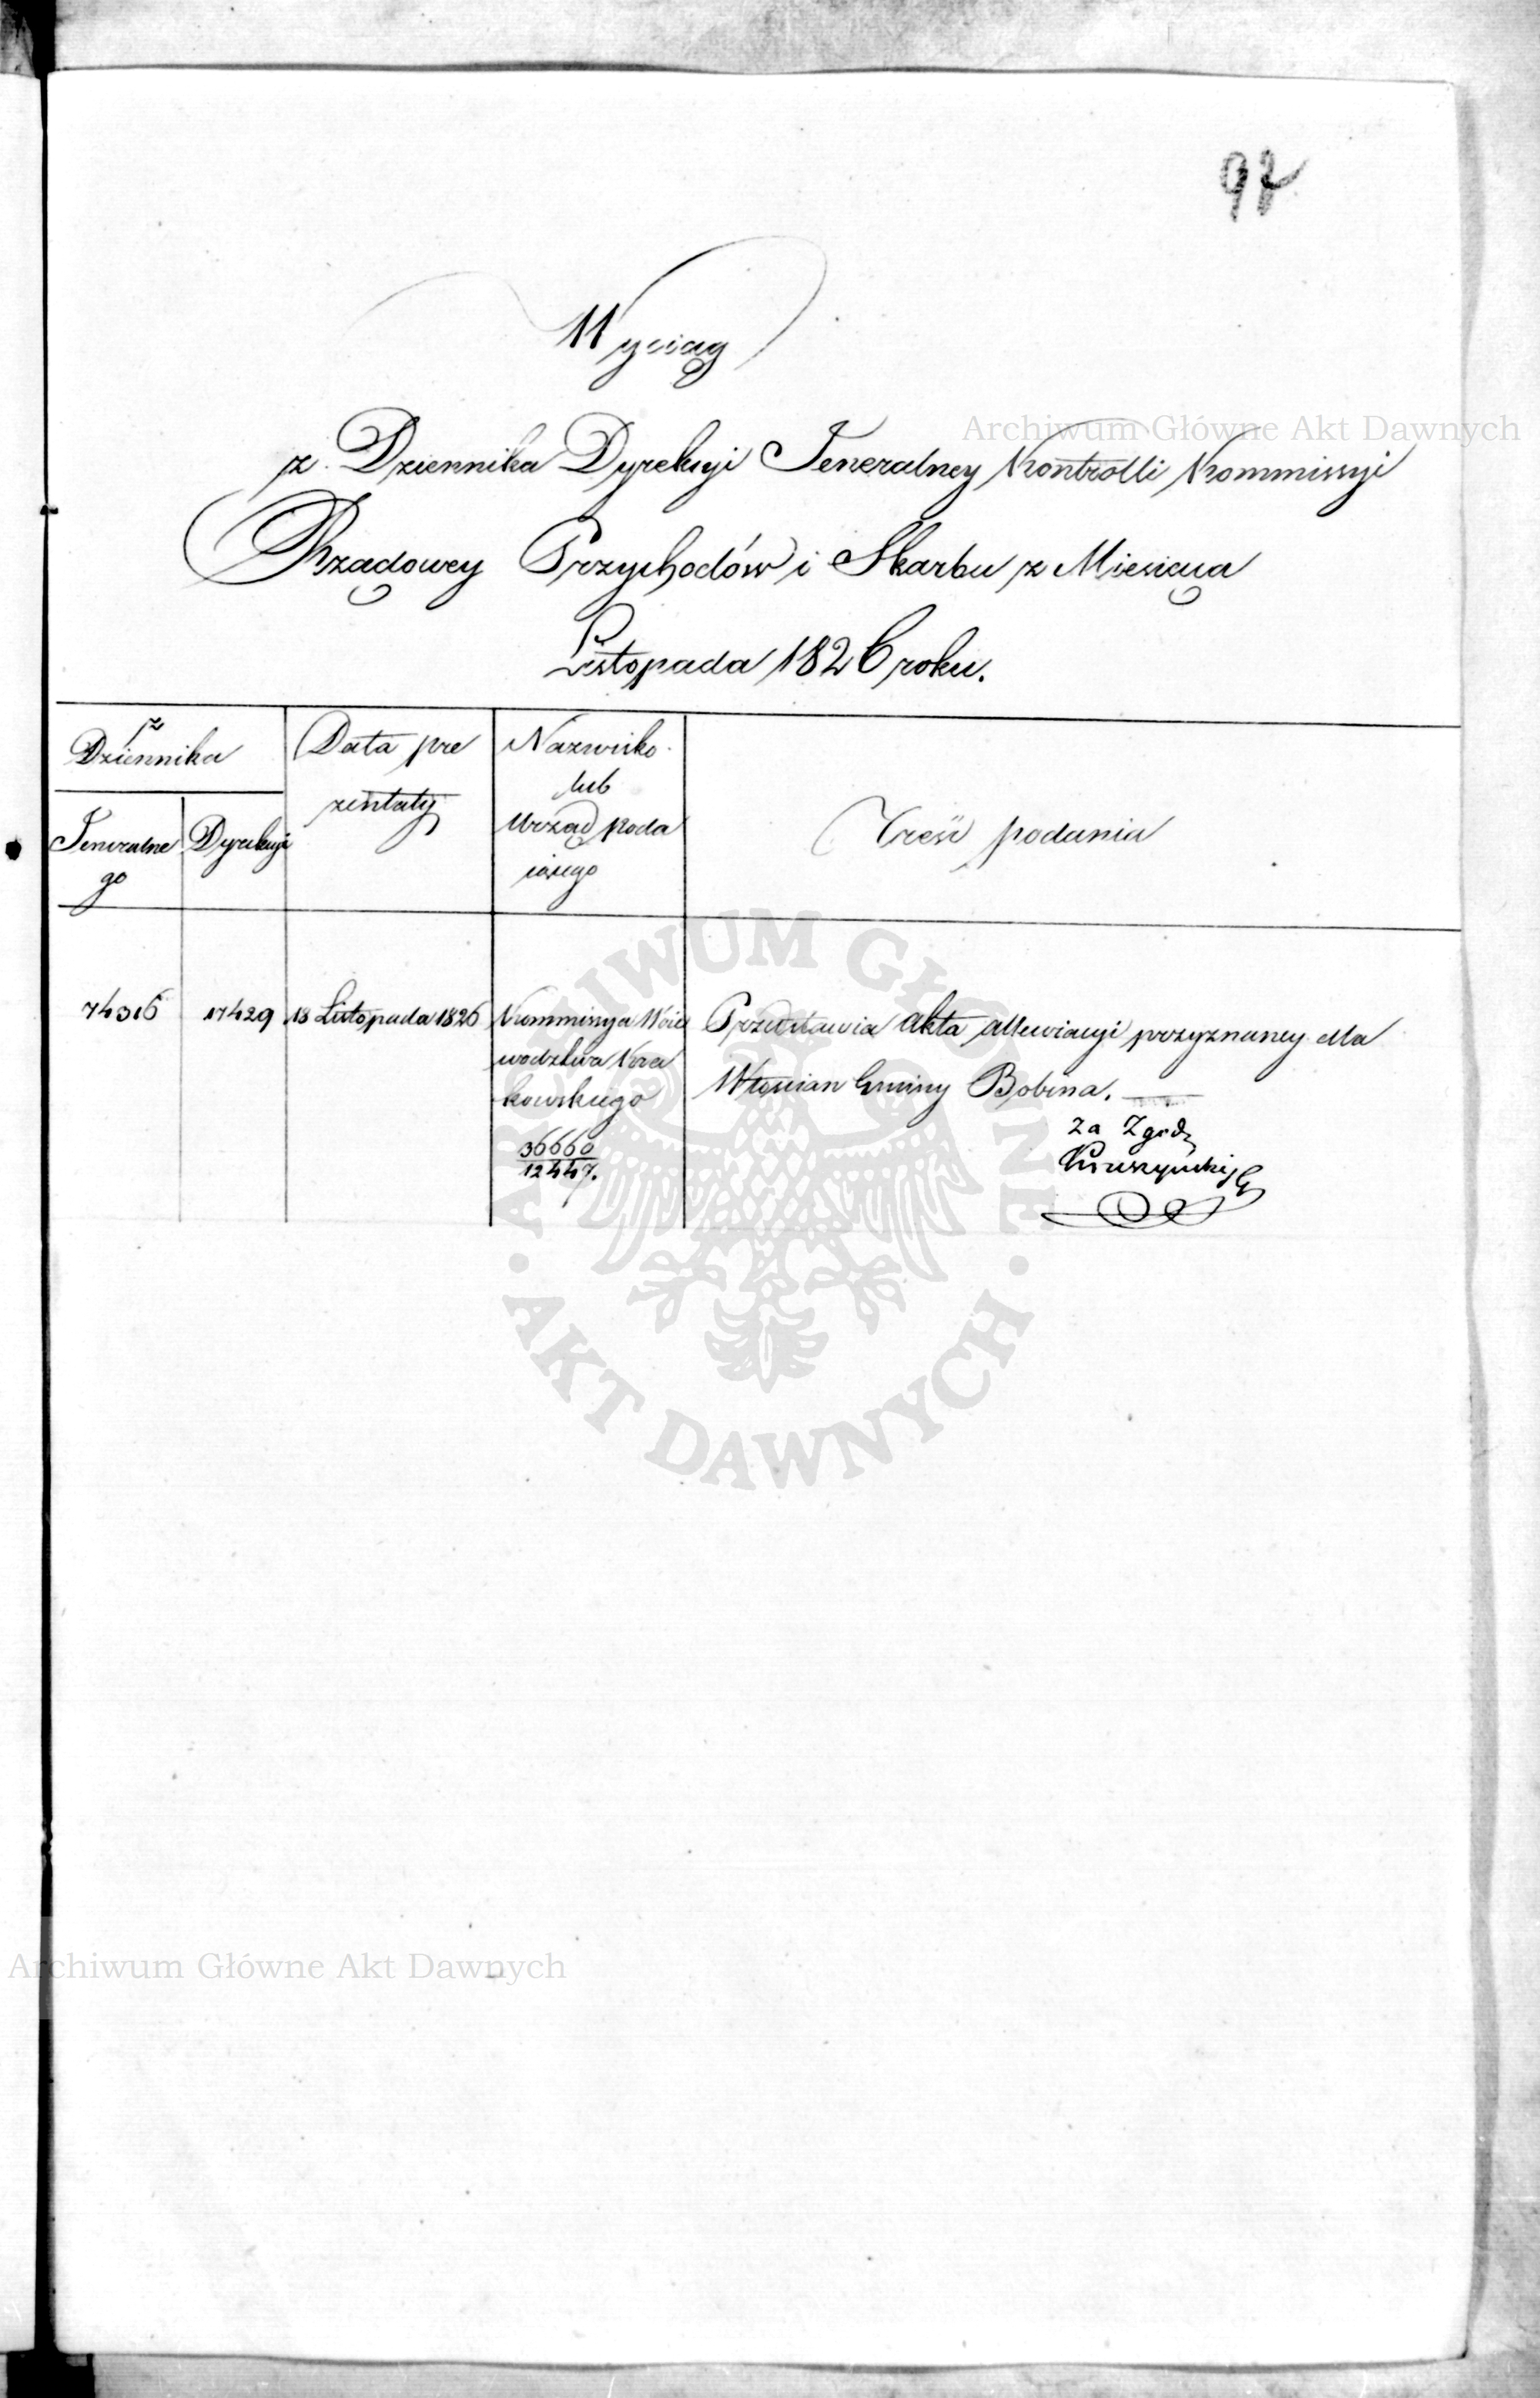 97
Wyciąg
z Dziennika Dyrekcyi Jeneralney Kontrolli Kommissyi
Rządowey Przychodów i Skarbu z Miesiąca
Listopada 1826 roku.
z
Dziennika
Jeneralne
go
Dyrekcyi
Data pre
zentaty
Nazwisko
lub
Urząd poda
iącego
Treść podania
74316
17429
18 Listopada 1826
Kommissya Woie
wodztwa Kra
kowskiego
36660
12447.
Przedstawia Akta allewiacyi przyznaney dla
Włościan Gminy Bobina.
Za Zgod
Archiwum Główne Akt Dawnych
ARCHIWUM GŁÓWNE · AKT DAWNYCH ·
Archiwum Główne Akt Dawnych